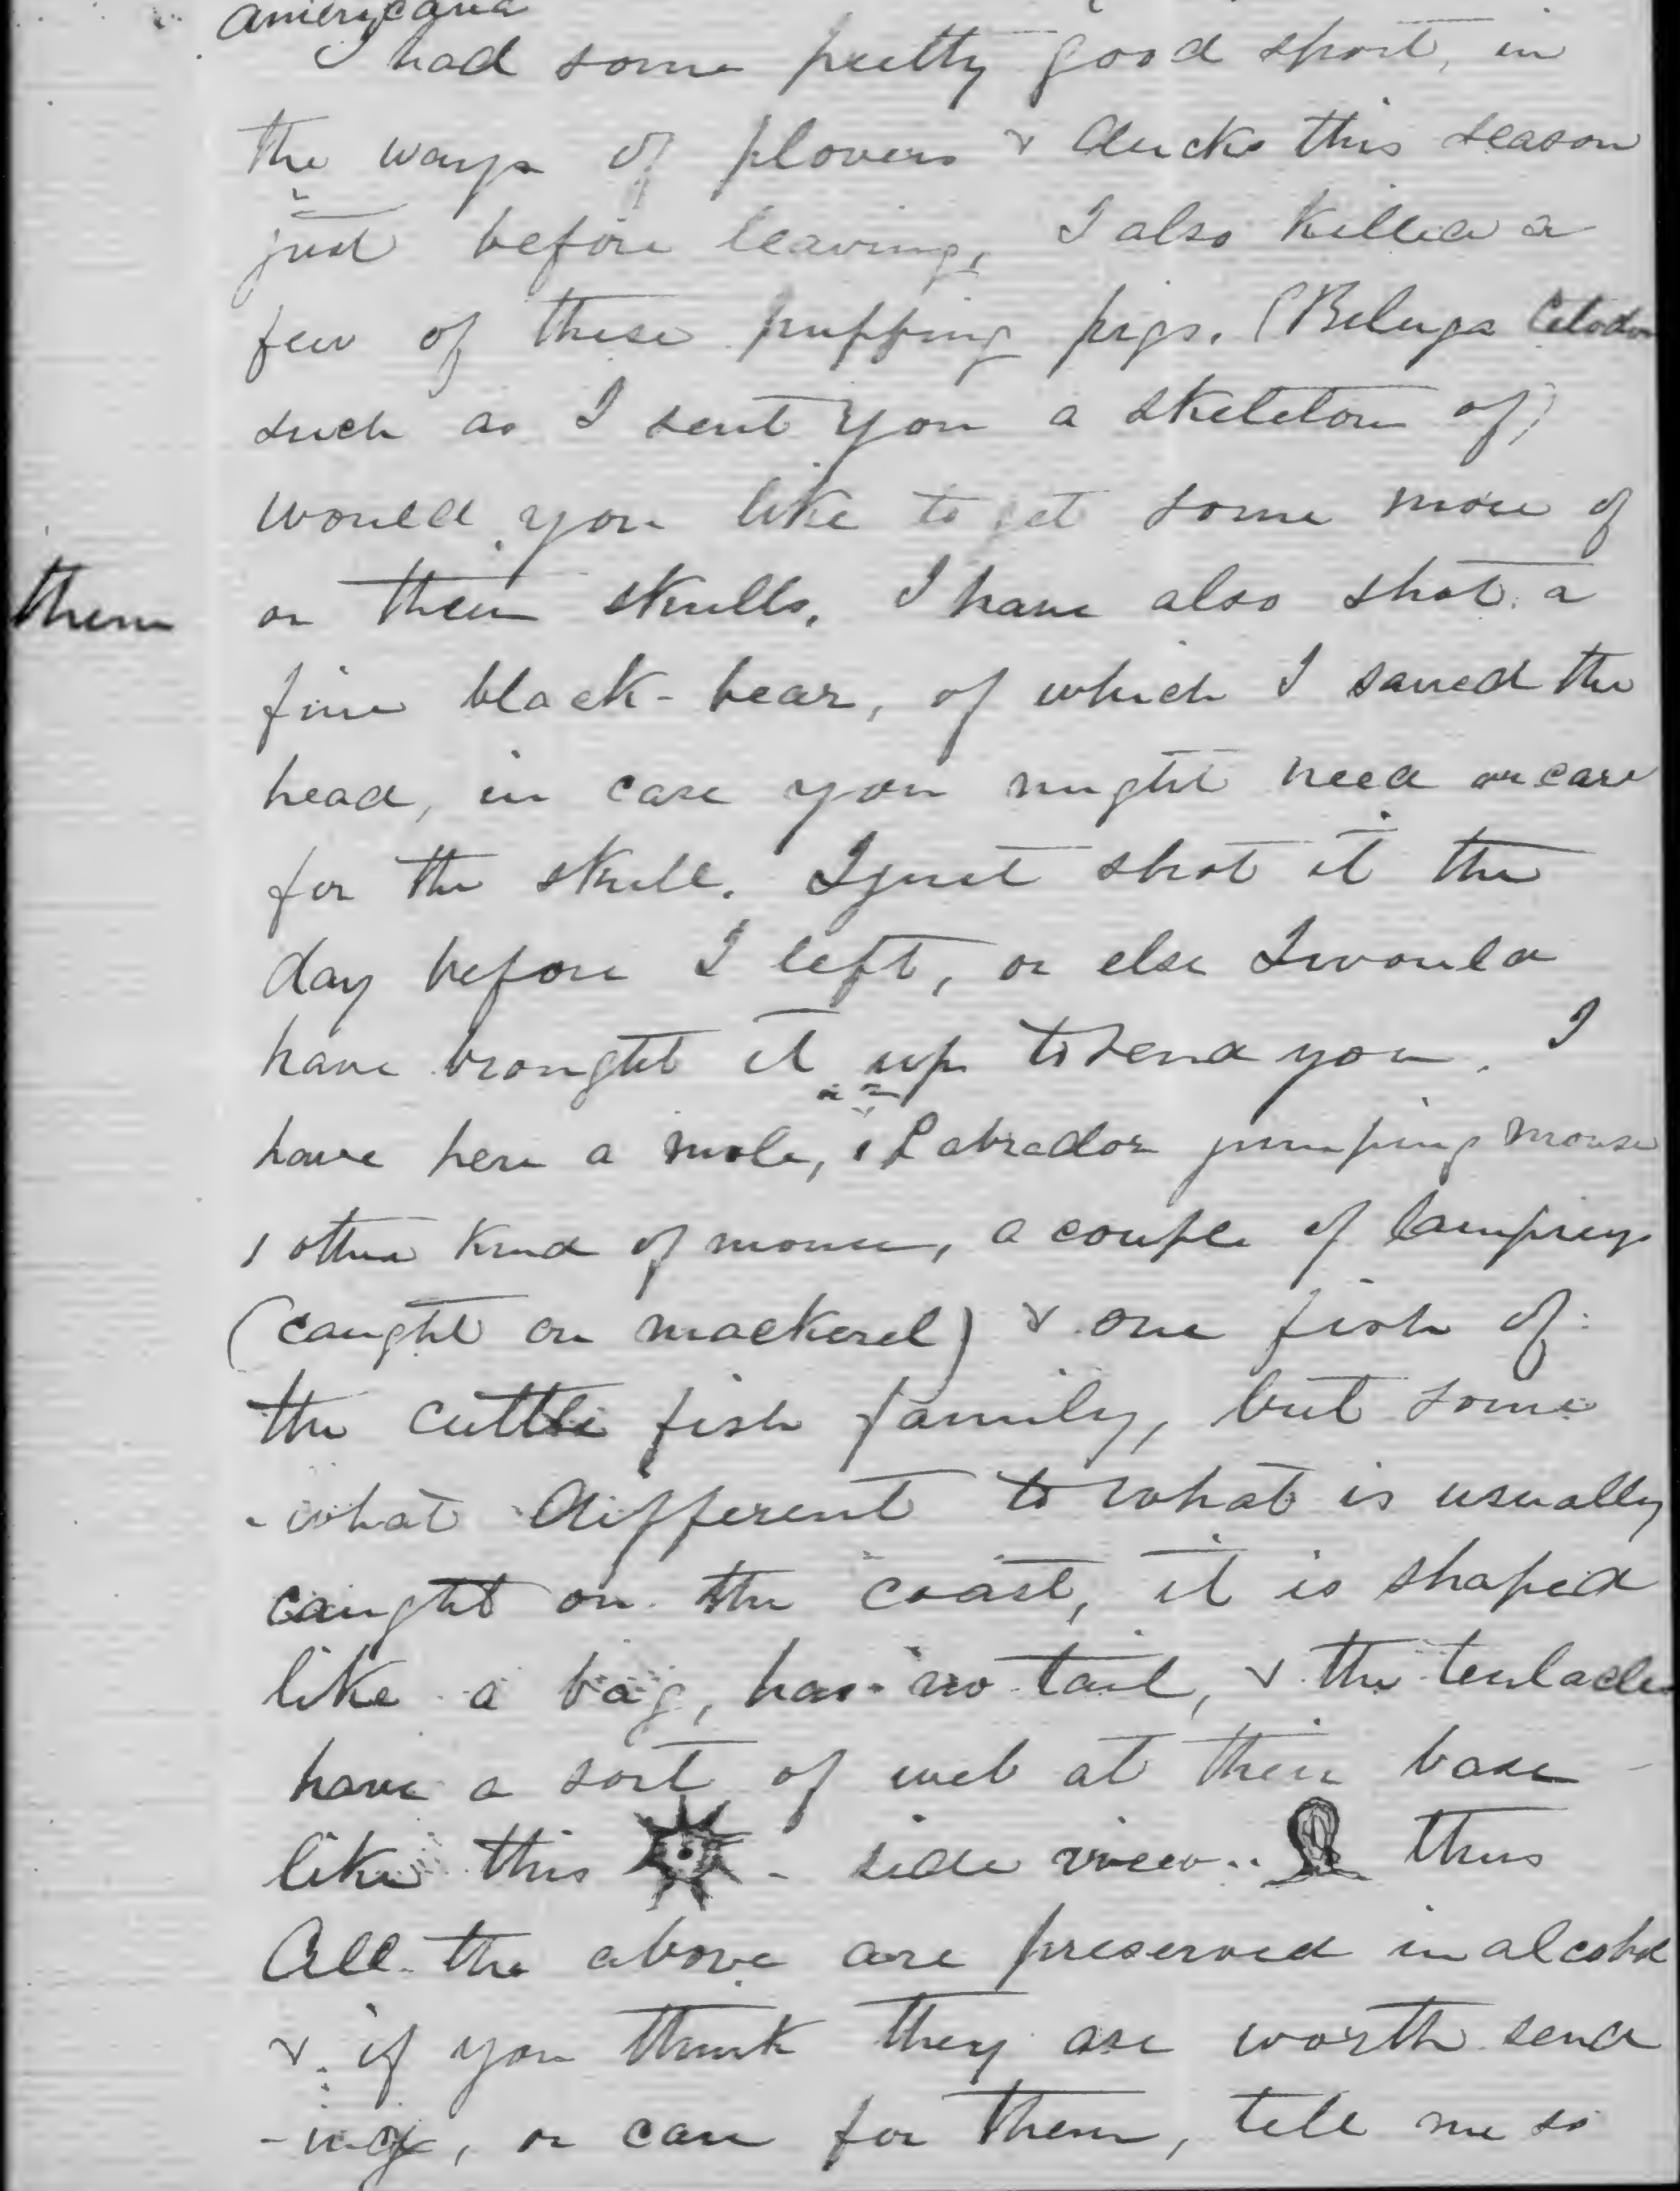 americana
I had some pretty good sport, in
the ways of plovers & ducks this season
just before leaving, I also killed a
few of these puffing pigs. (Beluga Catodon
such as I sent you a skeleton of)
would you like to get some more of
them
or their skulls. I have also shot a
fine black-bear, of which I saved the
head, in case you might need or care
for the skull. I just shot it the
day before I left, or else I would
have brought it up to send you. I
have here a mole, 1 Labrador jumping mouse
1 other kind of mouse, a couple of lampreys
(caught on mackerel) & one fish of
the cuttle fish family, but some
-what different to what is usually
caught on the coast, it is shaped
like a bag, has no tail, & the tentacles
have a sort of web at their base
like this - side view.. thus
All the above are preserved in alcohol
& if you think they are worth send
-ing, or care for them, tell me so